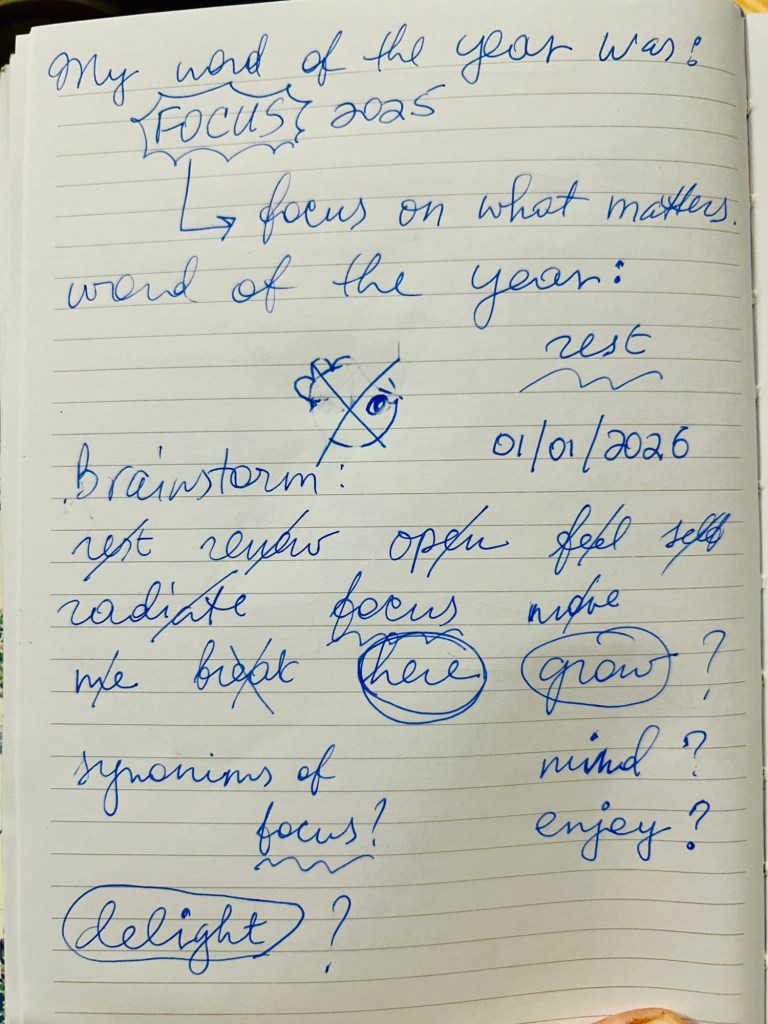 My word of the year was:
FOCUS 2025
focus on what matters.
word of the year:
rest
01/01/2026
Brainstorm:
rest review open feel self
radiate focus move
me break here grow ?
synonims of mind ?
focus? enjoy ?
delight ?